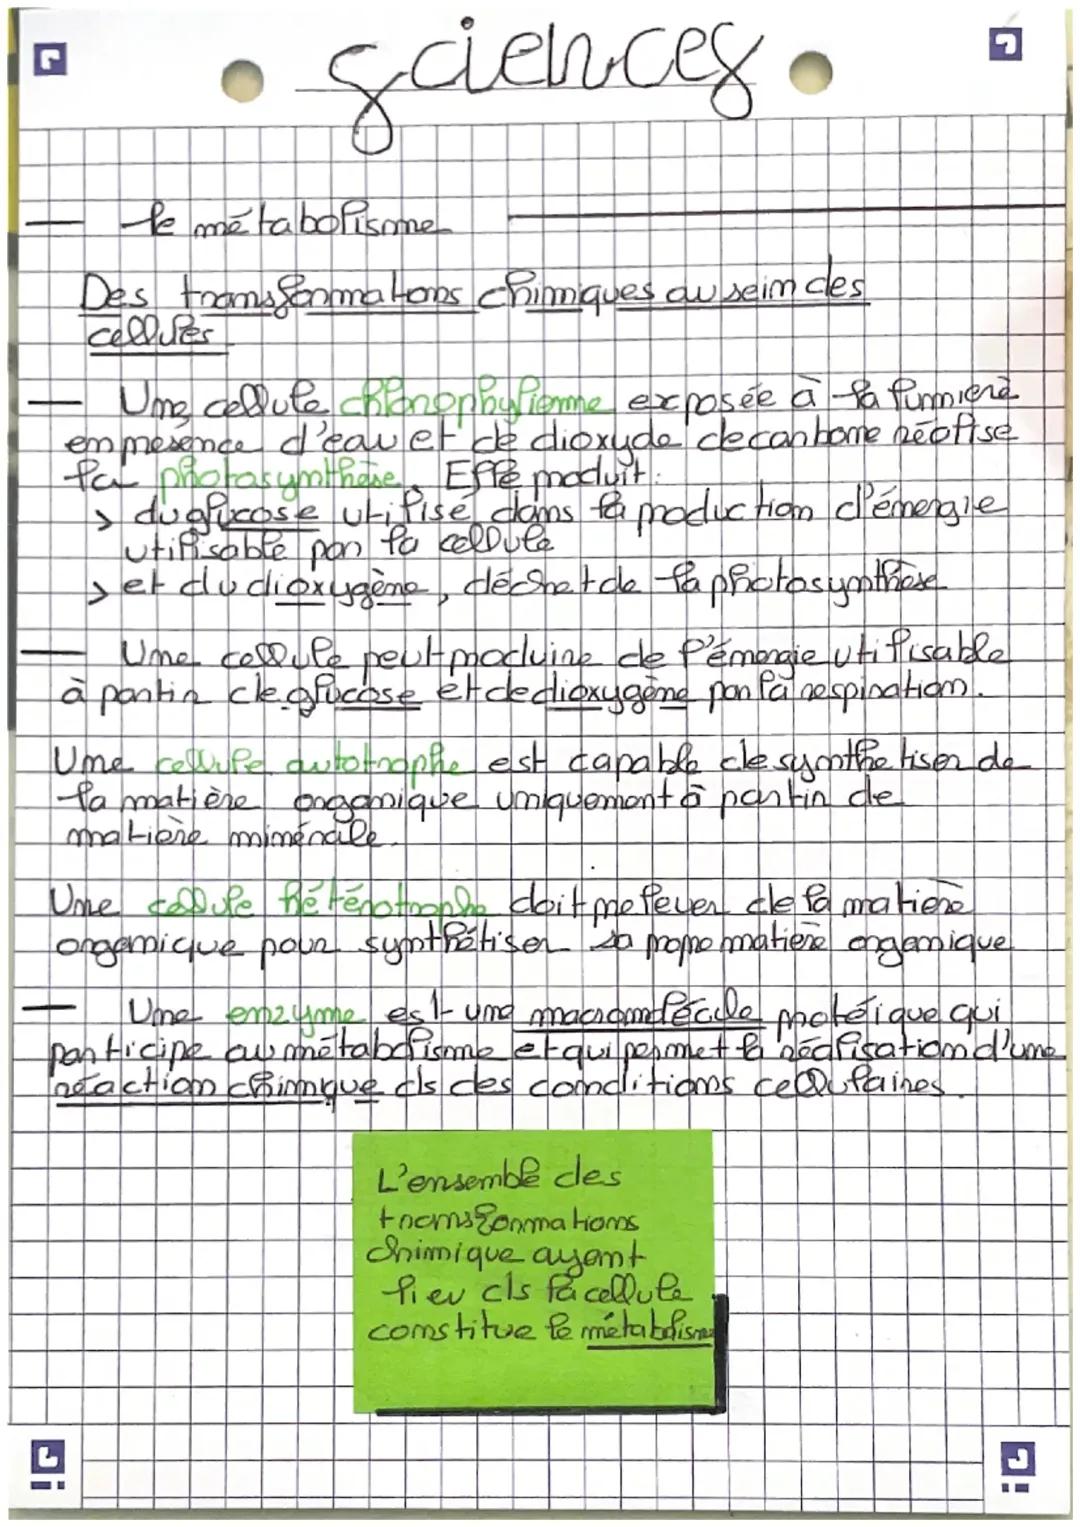 sciences
le métabolisme
Des transformations chimiques au sein des
cellules
Une cellule chlorophylienne exposée à la lumière
en présence d'eau et de dioxyde de carbone réalise
la photosynthèse. Elle produit :
> du glucose utilisé dans la production d'énergie
utilisable par la cellule
> et du dioxygène, déchet de la photosynthèse
Une cellule peut produire de l'énergie utilisable
à partir de glucose et de dioxygène par la respiration.
Une cellule autotrophe est capable de synthétiser de
la matière organique uniquement à partir de
matière minérale.
Une cellule hétérotrophe doit prélever de la matière
organique pour synthétiser sa propre matière organique
Une enzyme est une macromolécule protéique qui
participe au métabolisme et qui permet la réalisation d'une
réaction chimique ds des conditions cellulaires.
L'ensemble des
transformations
chimique ayant
lieu ds la cellule
constitue le métabolisme